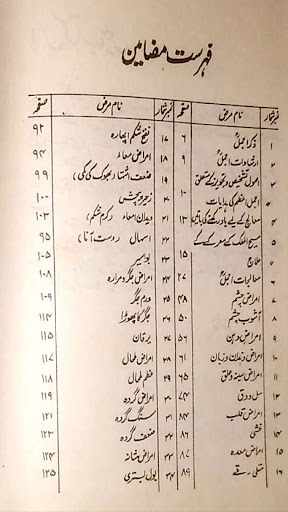 فہرست مضامین
نمبر شمار نام مرض صفحہ نمبر شمار نام مرض صفحہ
۱ ذکر اجملؒ ۶
۲ ارشادات اجملؒ ۹
۳ اصول تشخیص و تجویز کے متعلق
اجمل اعظم کی ہدایات ۱۰
۴ معالج کے لیے یاد رکھنے کی باتیں ۱۳
۵ مسیح الملک کے معرکے کے
علاج ۱۵
۶ معالجات اجملؒ ۲۷
۷ امراض چشم ۴۸
۸ آشوب چشم ۵۰
۹ امراض دہن ۵۶
۱۰ امراض دندان و زبان ۶۱
۱۱ امراض سینہ و حلق ۶۵
۱۲ سل و دق ۷۴
۱۳ امراض قلب ۸۴
۱۴ غشی ۸۶
۱۵ امراض معدہ ۸۷
۱۶ متلی ۔ قے ۸۹
۱۷ نفخ شکم اپھارہ ۹۲
۱۸ امراض معاء ۹۴
۱۹ ضعف اشتہا (بھوک کی کمی) ۹۹
۲۰ زحیر و پیچش ۱۰۰
۲۱ دیدان امعاء (کرم شکم) ۱۰۳
۲۲ اسہال (دست آنا) ۹۵
۲۳ بواسیر ۱۰۶
۲۴ امراض جگر و مرارہ ۱۰۸
۲۵ ورم جگر ۱۰۹
۲۶ جگر کا پھوڑا ۱۱۴
۲۷ یرقان ۱۱۵
۲۸ امراض طحال ۱۱۷
۲۹ عظم طحال ۱۱۸
۳۰ امراض گردہ ۱۱۹
۳۱ سنگ گردہ ۱۲۱
۳۲ ضعف گردہ ۱۲۳
۳۳ امراض مثانہ ۱۲۴
۳۴ بول بستری ۱۲۵